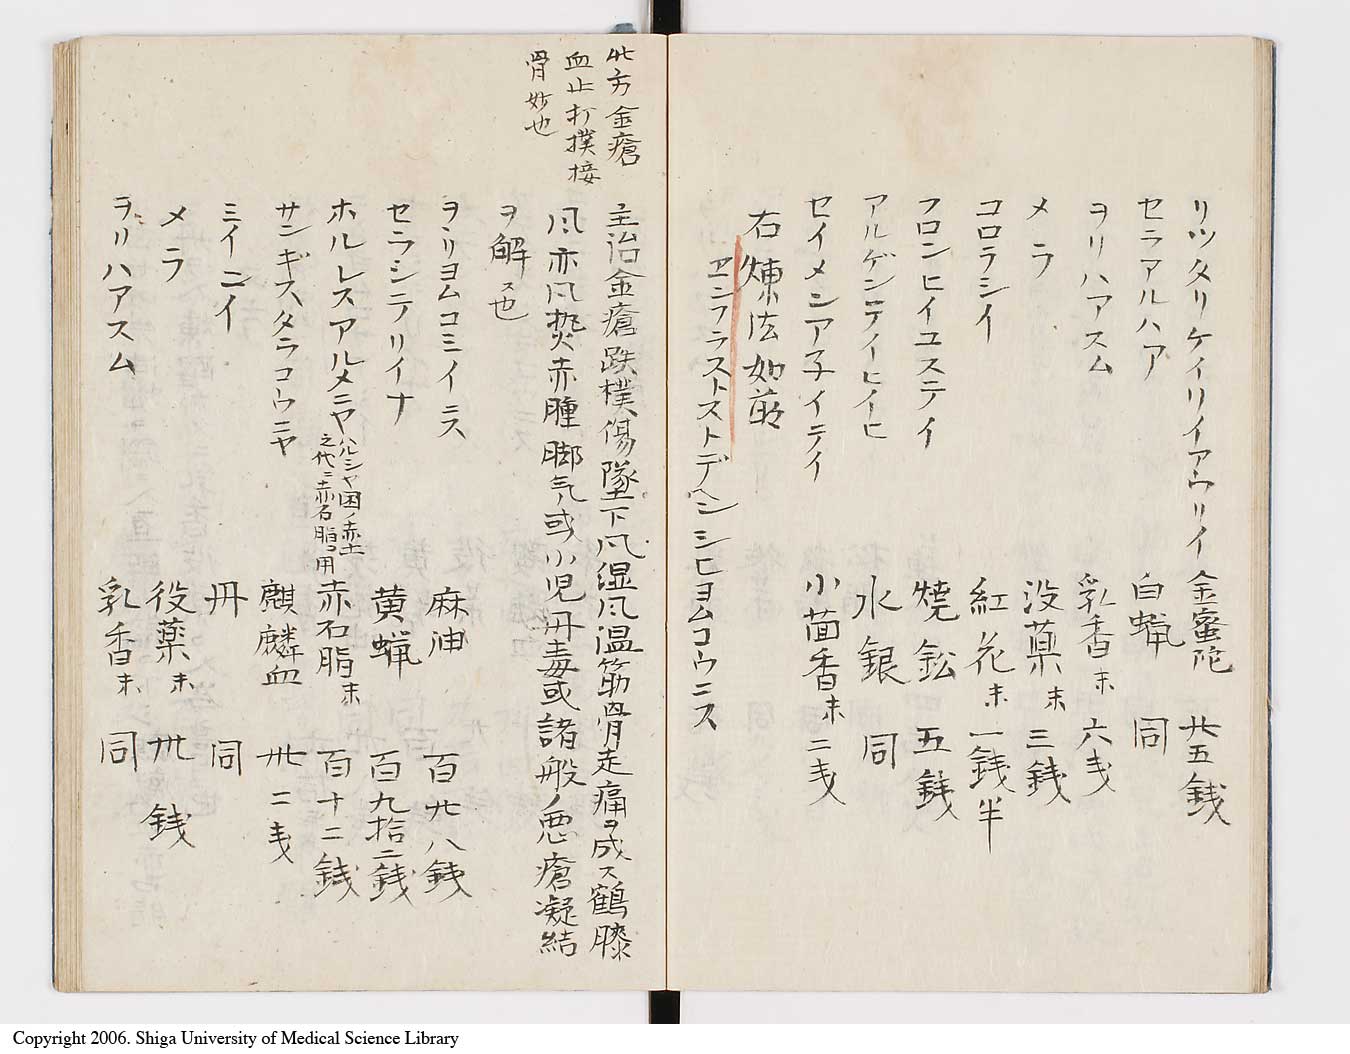 リツタリケイリイアウリイ 金蜜陀 廿五銭
セラアルハア 白蝋 同
ヲリハアスム 乳香末 六戋
メラ 没薬末 三銭
コロラシイ 紅花末 一銭半
フロンヒイユステイ 焼鈆 五銭
アルゲンテイーヒイヒ 水銀 同
セイメンアネイテイ 小茴香末 二戋
右煉法如前
ヱンフラストストデヘンシヒヨムコウニス
此方金瘡
血止打撲接
骨妙也
主治金瘡跌撲傷墜下風湿風温筋骨走痛ヲ成ス鶴膝
風亦風熨赤腫脚気或小児丹毒或諸般ノ悪瘡凝結
ヲ解ス也
ヲリヨムコミイニス 麻油 百廿八銭
セラシテリイナ 黄蝋 百九拾二銭
ホルレスアルメニヤ ハルシヤ国ノ赤土
之代ニ赤石脂ヲ用 赤石脂末 百十二銭
サンギスタラコウニヤ 麒麟血 卅二戋
ミイニイ 丹 同
メラ 役薬末 卅銭
ヲリハアスム 乳香末 同
Copyright 2006. Shiga University of Medical Science Library